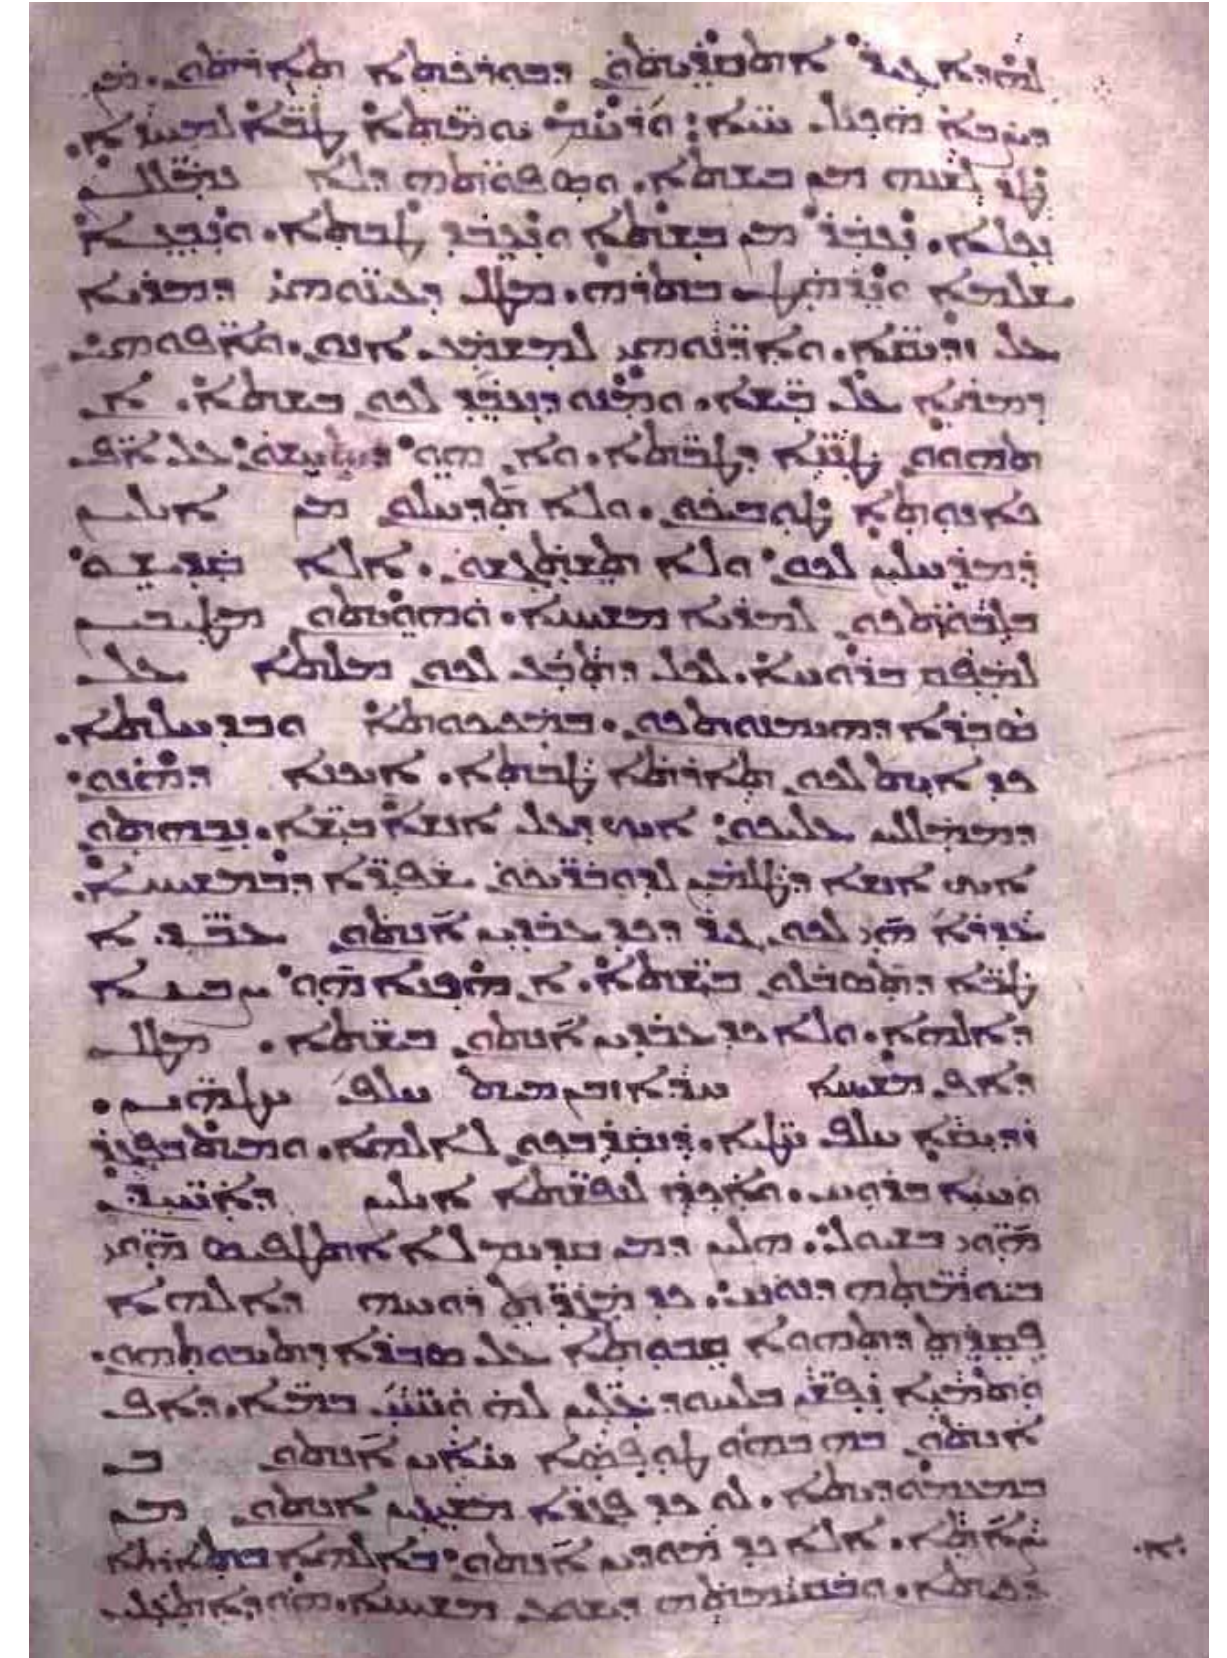 ܠܗܕܐ ܓܝܪ ܐܬܩܪܝܬܘܢ ܕܒܘܪܟܬܐ ܬܐܪܬܘܢ. ܡܢ
ܕܨܒܐ ܗܟܝܠ ܚܝ̈ܐ: ܘܪܚܡ ܝܘܡ̈ܬܐ ܛܒ̈ܐ ܠܡܚܙܐ.
ܢܛܪ ܠܫܢܗ ܡܢ ܒܝܫܬܐ. ܘܣܦܘ̈ܬܗ ܕܠܐ ܢܡܠܠܢ
ܢܟܠܐ. ܢܥܒܪ ܡܢ ܒܝܫܬܐ ܘܢܥܒܕ ܛܒܬܐ. ܘܢܒܥܐ
ܫܠܡܐ ܘܢܪܗܛ ܒܬܪܗ. ܡܛܠ ܕܥܝ̈ܢܘܗܝ ܕܡܪܝܐ
ܥܠ ܙܕܝ̈ܩܐ. ܘܐܕ̈ܢܘܗܝ ܠܡܫܡܥ ܐܢܘܢ. ܘܐܦ̈ܘܗܝ
ܕܡܪܝܐ ܥܠ ܒܝ̈ܫܐ. ܘܡܢܘ ܕܢܥܒܕ ܠܟܘܢ ܒܝܫܬܐ. ܐܢ
ܬܗܘܘܢ ܛܢ̈ܢܐ ܕܛܒ̈ܬܐ. ܘܐܢ ܗܘ ܕܬܚܫܘܢ ܥܠ ܐܦ̈ܝ
ܟܐܢܘܬܐ ܛܘܒܝܟܘܢ. ܘܠܐ ܬܕܚܠܘܢ ܡܢ ܐܝܠܝܢ
ܕܡܕܚܠܝܢ ܠܟܘܢ ܘܠܐ ܬܫܬܓܫܘܢ. ܐܠܐ ܩܕܫܘ
ܒܠܒܘ̈ܬܟܘܢ ܠܡܪܝܐ ܡܫܝܚܐ. ܘܗܘܝܬܘܢ ܡܛܝܒܝܢ
ܠܡܦܩ ܒܪܘܚܐ. ܠܟܠ ܕܬܒܥ ܠܟܘܢ ܡܠܬܐ ܥܠ
ܣܒܪܐ ܕܗܝܡܢܘܬܟܘܢ. ܒܡܟܝܟܘܬܐ ܘܒܕܚܠܬܐ.
ܟܕ ܐܝܬ ܠܟܘܢ ܬܐܪܬܐ ܛܒܬܐ. ܐܝܟܢܐ ܕܗܢܘܢ
ܕܡܡܠܠܝܢ ܥܠܝܟܘܢ ܐܝܟ ܕܥܠ ܐܢܫܐ ܒܝ̈ܫܐ. ܢܒܗܬܘܢ
ܐܝܟ ܐܢܫܐ ܕܛܠܡܝܢ ܠܕܘܒܪ̈ܝܟܘܢ ܫܦܝܪ̈ܐ ܕܒܡܫܝܚܐ.
ܥܕܪܐ ܗܘ ܠܟܘܢ ܓܝܪ ܕܟܕ ܥܒܕܝܢ ܐܢܬܘܢ ܥܒ̈ܕܐ
ܛܒ̈ܐ ܕܬܣܒܠܘܢ ܒܝ̈ܫܬܐ. ܐܢ ܗܟܢܐ ܗܘ ܨܒܝܢܐ
ܕܐܠܗܐ. ܘܠܐ ܟܕ ܥܒܕܝܢ ܐܢܬܘܢ ܒܝ̈ܫܬܐ. ܡܛܠ
ܕܐܦ ܡܫܝܚܐ ܚܕܐ ܙܒܢ ܡܝܬ ܚܠܦ ܚܛܗ̈ܝܢ.
ܙܕܝܩܐ ܚܠܦ ܚܛ̈ܝܐ. ܕܢܩܪܒܟܘܢ ܠܐܠܗܐ. ܘܡܝܬ ܒܦܓܪ
ܘܚܝܐ ܒܪܘܚ. ܘܐܟܪܙ ܠܢܦ̈ܫܬܐ ܐܝܠܝܢ ܕܐܚܝ̈ܕܢ
ܗܘ̈ܝ ܒܫܝܘܠ. ܗܠܝܢ ܕܡܢ ܩܕܝܡ ܠܐ ܐܬܛܦܝܣ ܗܘ̈ܝ
ܒܝܘܡ̈ܬܗ ܕܢܘܚ. ܟܕ ܡܓܪܬ ܪܘܚܗ ܕܐܠܗܐ
ܦܩܕܬ ܕܬܗܘܐ ܩܒܘܬܐ ܥܠ ܣܒܪܐ ܕܬܝܒܘܬܗܘܢ.
ܘܬܡܢܐ ܢܦܫ̈ܢ ܒܠܚܘܕ ܥ̈ܠܝܢ ܠܗ ܘܚܝ̈ܝ ܒܡ̈ܝܐ. ܕܐܦ
ܐܢܬܘܢ ܒܗ ܒܗܘ ܛܘܦܣܐ ܚܐܝܢ ܐܢܬܘܢ ܒ
ܒܡܥܡܘܕܝܬܐ. ܠܘ ܟܕ ܦܓܪܐ ܡܫܝܓܝܢ ܐܢܬܘܢ ܡܢ
ܨܐܬܐ. ܐܠܐ ܟܕ ܡܘܕܝܢ ܐܢܬܘܢ ܒܐܠܗܐ ܒܬܐܪܬܐ
ܕܟܝܬܐ. ܘܒܩܝܡܬܗ ܕܝܫܘܥ ܡܫܝܚܐ. ܗܘ ܕܐܬܥܠܝ